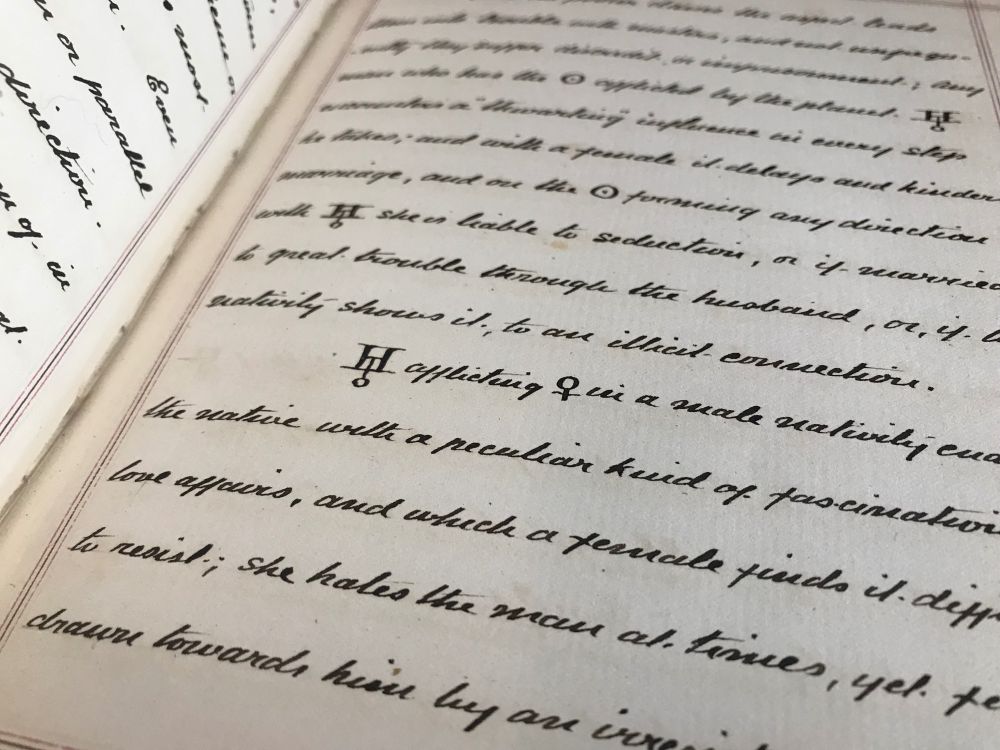 or parallel
Even
most
direction.
of. in
the aspect tends
trouble with masters, and not
they suffer discredit, or imprisonment; any
man who has the ☉ afflicted by the planet ♅
encounters a "thwarting" influence in every step
he takes; and with a female it delays and hinders
marriage, and on the ☉ forming any direction
with ♅ she is liable to seduction, or if married
to great trouble through the husband, or, if
nativity shows it, to an illicit connection.
♅ afflicting ♀ in a male nativity
the native with a peculiar kind of fascination
love affairs, and which a female finds it
to resist; she hates the man at times, yet
drawn towards him by an